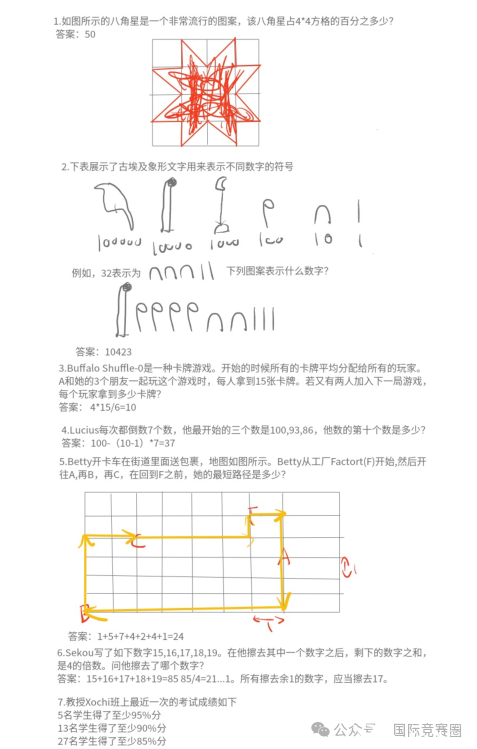 1.如图所示的八角星是一个非常流行的图案，该八角星占4*4方格的百分之多少？
答案：50
2.下表展示了古埃及象形文字用来表示不同数字的符号
100000 10000 1000 100 10 1
例如，32表示为 下列图案表示什么数字？
答案：10423
3.Buffalo Shuffle-0是一种卡牌游戏。开始的时候所有的卡牌平均分配给所有的玩家。
A和她的3个朋友一起玩这个游戏时，每人拿到15张卡牌。若又有两人加入下一局游戏，
每个玩家拿到多少卡牌？
答案： 4*15/6=10
4.Lucius每次都倒数7个数，他最开始的三个数是100,93,86，他数的第十个数是多少？
答案：100-（10-1）*7=37
5.Betty开卡车在街道里面送包裹，地图如图所示。Betty从工厂Factort(F)开始,然后开
往A,再B，再C，在回到F之前，她的最短路径是多少？
F
C
A
B
1
答案：1+5+7+4+2+4+1=24
6.Sekou写了如下数字15,16,17,18,19。在他擦去其中一个数字之后，剩下的数字之和，
是4的倍数。问他擦去了哪个数字？
答案：15+16+17+18+19=85 85/4=21...1。所有擦去余1的数字，应当擦去17。
7.教授Xochi班上最近一次的考试成绩如下
5名学生得了至少95%分
13名学生得了至少90%分
27名学生得了至少85%分
公众号 国际竞赛圈